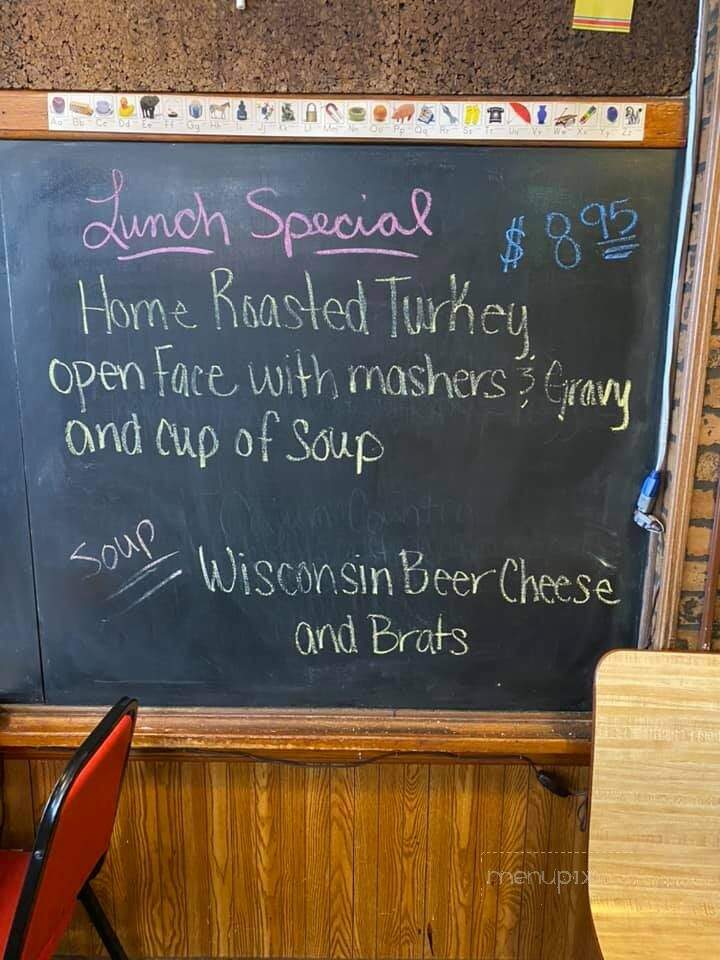 Aa Bb Cc Dd Ee Ff Gg Hh Ii Jj Kk Ll Mm Nn Oo Pp Qq Rr Ss Tt Uu Vv Ww Xx Yy Zz
Lunch Special $8 95
Home Roasted Turkey
open Face with mashers & Gravy
and cup of Soup
Soup
Wisconsin Beer Cheese
and Brats
menupix